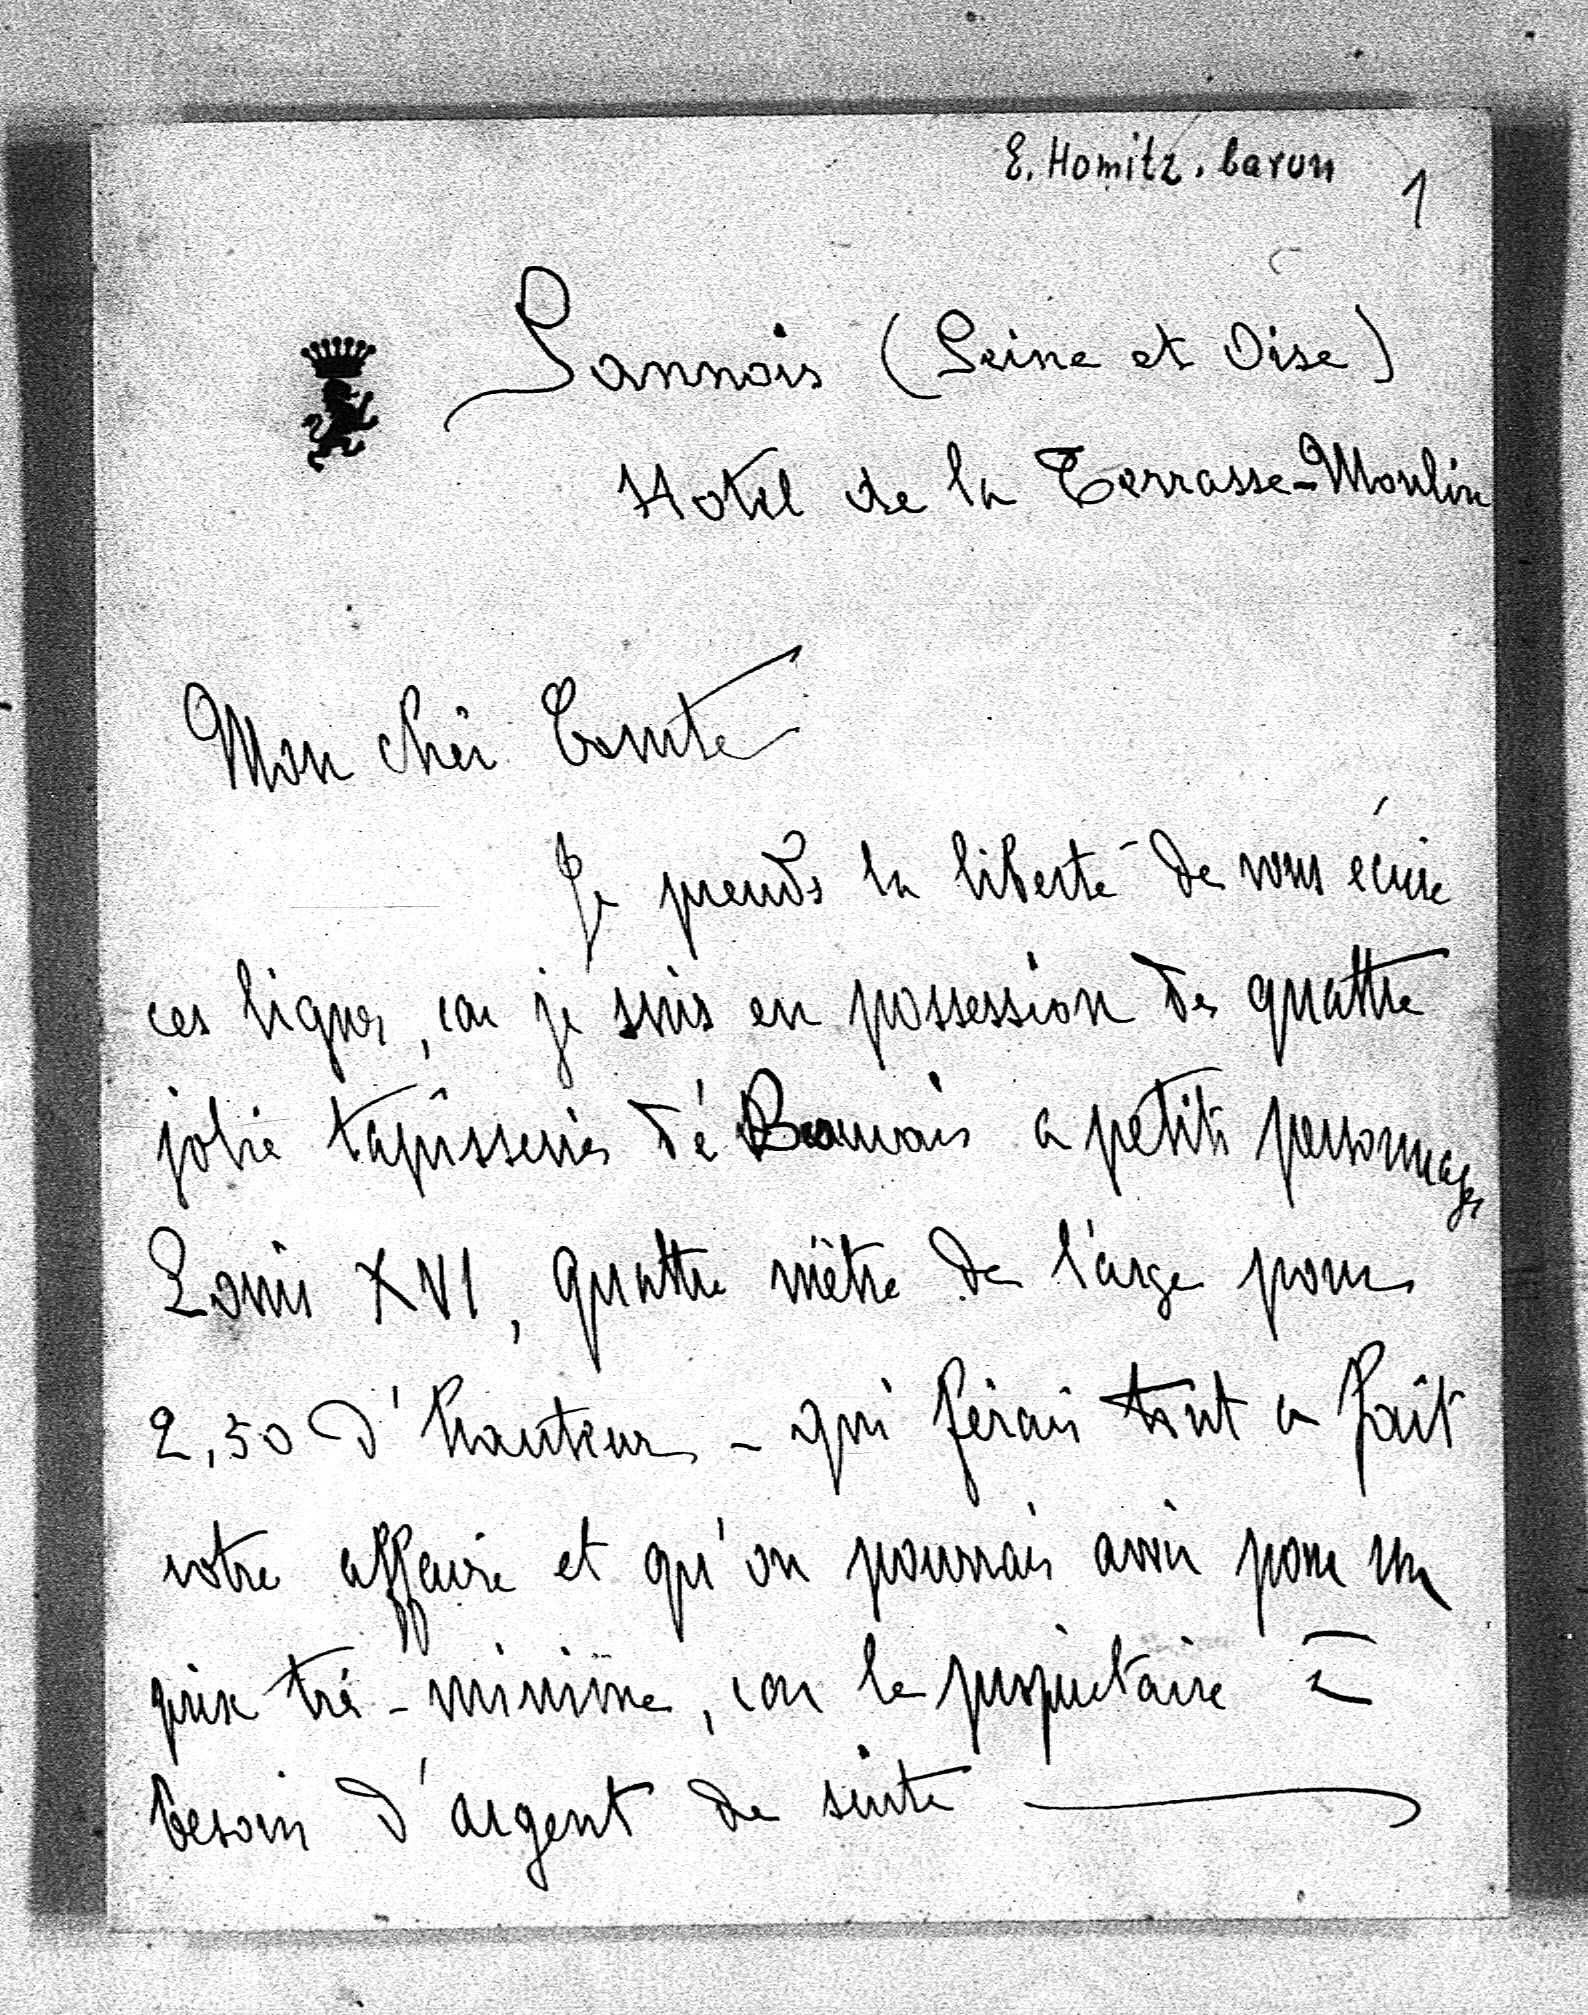 E. Homitz. baron 1
Sannois (Seine et Oise)
Hotel de la Terrasse-Moulin
Mon cher Comte
Je prends la liberté de vous écrire
ces lignes, car je suis en possession de quattre
jolie tapisseries dé Beauvais a petits personnages
Louis XVI, quattre mètre de l'arge pour
2,50 d'hauteur - qui férais tout a fait
votre affaire et qu'on pourrais avoir pour un
prix tré-minime, car le propietaire a
besoin d'argent de suite